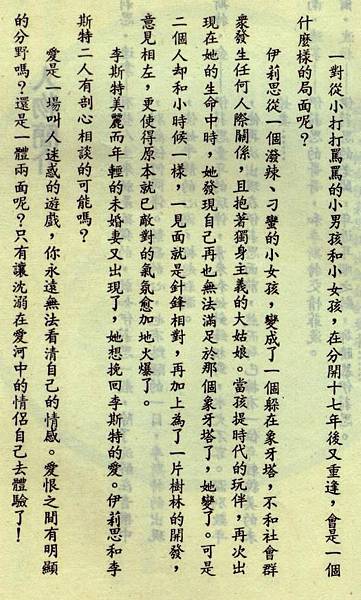 一對從小打打罵罵的小男孩和小女孩，在分開十七年後又重逢，會是一個
什麼樣的局面呢？
伊莉思從一個潑辣、刁蠻的小女孩，變成了一個躲在象牙塔，不和社會群
衆發生任何人際關係，且抱著獨身主義的大姑娘。當孩提時代的玩伴，再次出
現在她的生命中時，她發現自己再也無法滿足於那個象牙塔了，她變了。可是
二個人却和小時候一樣，一見面就是針鋒相對，再加上為了一片樹林的開發，
意見相左，更使得原本就已敵對的氣氛愈加地火爆了。
李斯特美麗而年輕的未婚妻又出現了，她想挽回李斯特的愛。伊莉思和李
斯特二人有剖心相談的可能嗎？
愛是一場叫人迷惑的遊戲，你永遠無法看清自己的情感。愛恨之間有明顯
的分野嗎？還是一體兩面呢？只有讓沈溺在愛河中的情侶自己去體驗了！